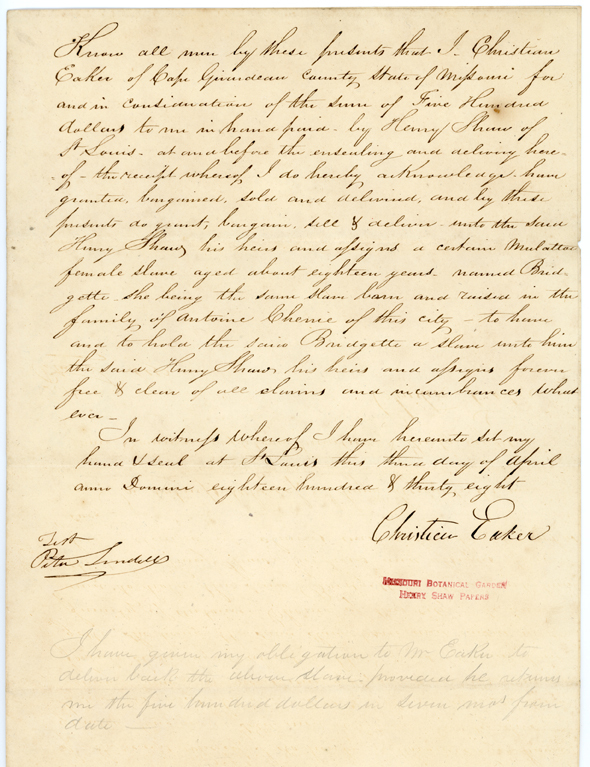 Know all men by these presents that I - Christian
Eaker of Cape Girardeau county State of Missouri for
and in consideration of the sum of Five Hundred
dollars to me in hand paid - by Henry Shaw of
St Louis - at and before the ensealing and delivery here-
of - the receipt whereof I do hereby acknowledge - have
granted, bargained, sold and delivered, and by these
presents do grant, bargain, sell & deliver - unto the said
Henry Shaw, his heirs and assigns a certain Mulattoe
female slave aged about eighteen years - named Brid-
gette - she being the same slave born and raised in the
family of Antoine Chenie of this city - to have
and to hold the said Bridgette a slave unto him
the said Henry Shaw his heirs and assigns forever
free & clear of all claims and incumbrances what
ever -
In witness whereof I have hereunto set my
hand & seal at St Louis this third day of April
anno Domini eighteen hundred & thirty eight
Christian Eaker
Test
Peter Lindell
MISSOURI BOTANICAL GARDEN
HENRY SHAW PAPERS
I have given my obligation to Mr Eaker to
deliver back the above slave - provided he returns
me the five hundred dollars in seven mos from
date -